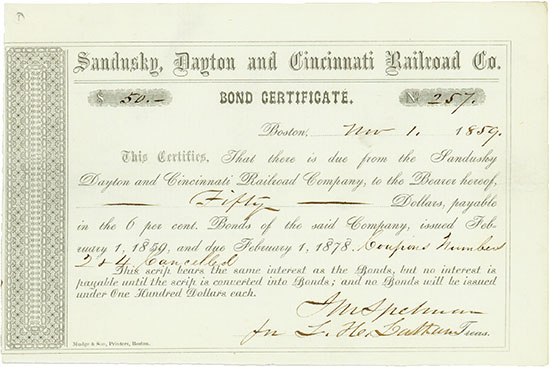 Sandusky, Dayton and Cincinnati Railroad Co.
$ 50.- BOND CERTIFICATE. No 257.
Boston, Nov 1. 1859.
This Certifies, That there is due from the Sandusky
Dayton and Cincinnati Railroad Company, to the Bearer hereof,
Fifty Dollars, payable
in the 6 per cent. Bonds of the said Company, issued Feb-
ruary 1, 1859, and due February 1, 1878. Coupons Number
2 & 4 Cancelled
This scrip bears the same interest as the Bonds, but no interest is
payable until the scrip is converted into Bonds; and no Bonds will be issued
under One Hundred Dollars each.
J M Spelman
for L. H. Latham Treas.
Mudge & Son, Printers, Boston.